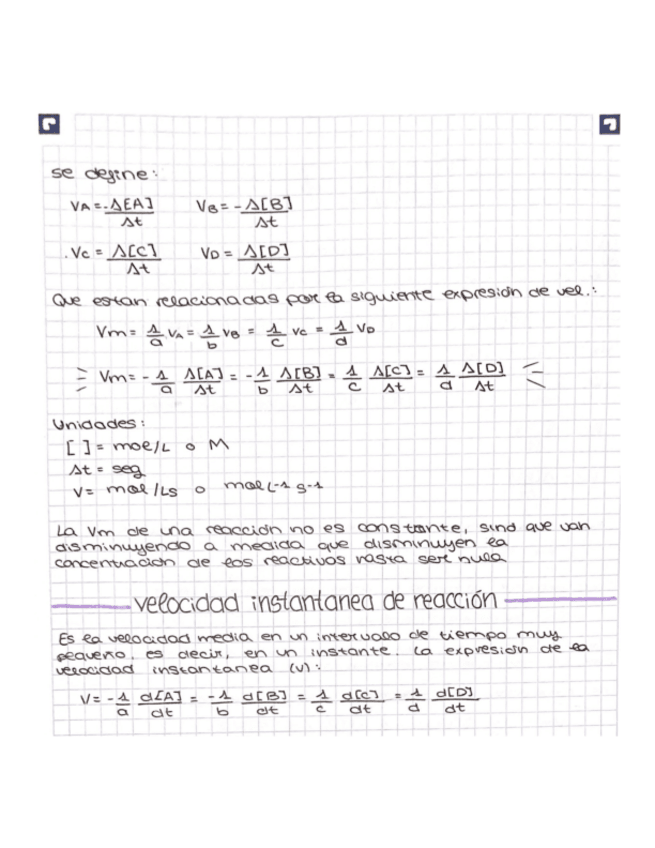 se define:
VA = -Δ[A]/Δt   VB = -Δ[B]/Δt
VC = Δ[C]/Δt   VD = Δ[D]/Δt
Que estan relacionadas por la siguiente expresión de vel.:
Vm = 1/a VA = 1/b VB = 1/c VC = 1/d VD
Vm = -1/a Δ[A]/Δt = -1/b Δ[B]/Δt = 1/c Δ[C]/Δt = 1/d Δ[D]/Δt
Unidades:
[ ] = mol/L o M
Δt = seg
V = mol/Ls o mol L-1 s-1
La Vm de una reacción no es constante, sino que van
disminuyendo a medida que disminuyen la
concentración de los reactivos hasta ser nula
velocidad instantanea de reacción
Es la velocidad media en un intervalo de tiempo muy
pequeño, es decir, en un instante. La expresión de la
velocidad instantanea (v):
V = -1/a d[A]/dt = -1/b d[B]/dt = 1/c d[C]/dt = 1/d d[D]/dt